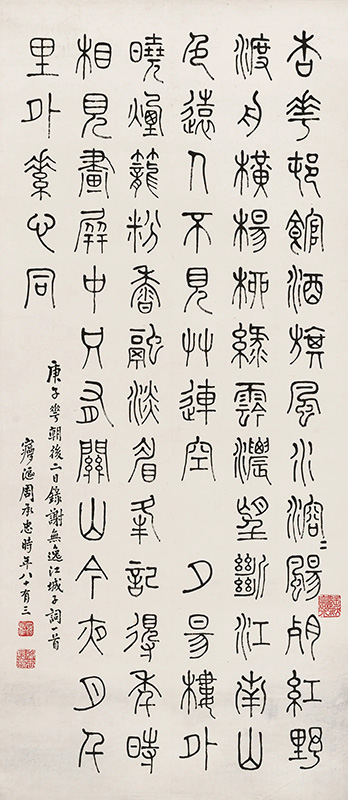 杏華邨館酒旗風水溶〻颺殘紅野
渡舟橫楊柳綠霒濃望斷江南山
色遠人不見艸連空 夕昜樓外
曉煙籠粉香融淡眉峯記得年時
相見畫屏中只有關山今夜月千
里外素心同
庚子花朝後二日錄謝無逸江城子詞一首
漚周承忠時年八十有三